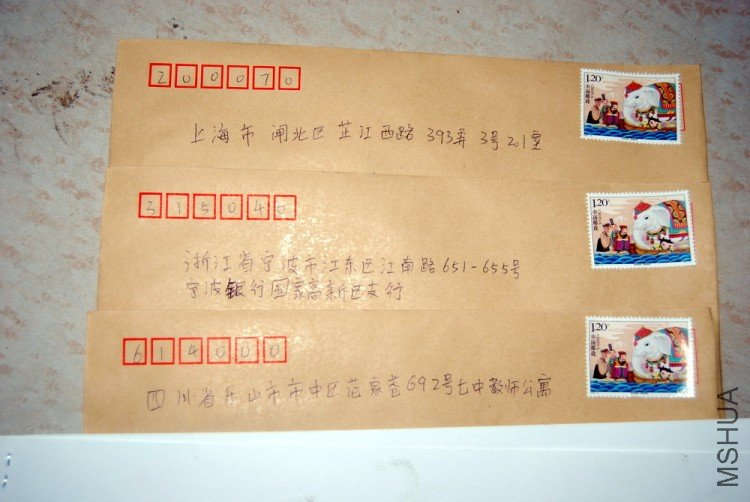 200070
1.20
中国邮政
上海市闸北区芷江西路393弄3号201室
315040
1.20
中国邮政
浙江省宁波市江东区江南路651-655号
宁波银行国家高新区支行
614000
1.20
中国邮政
四川省乐山市市中区范家巷692号七中教师公寓
MSHUA